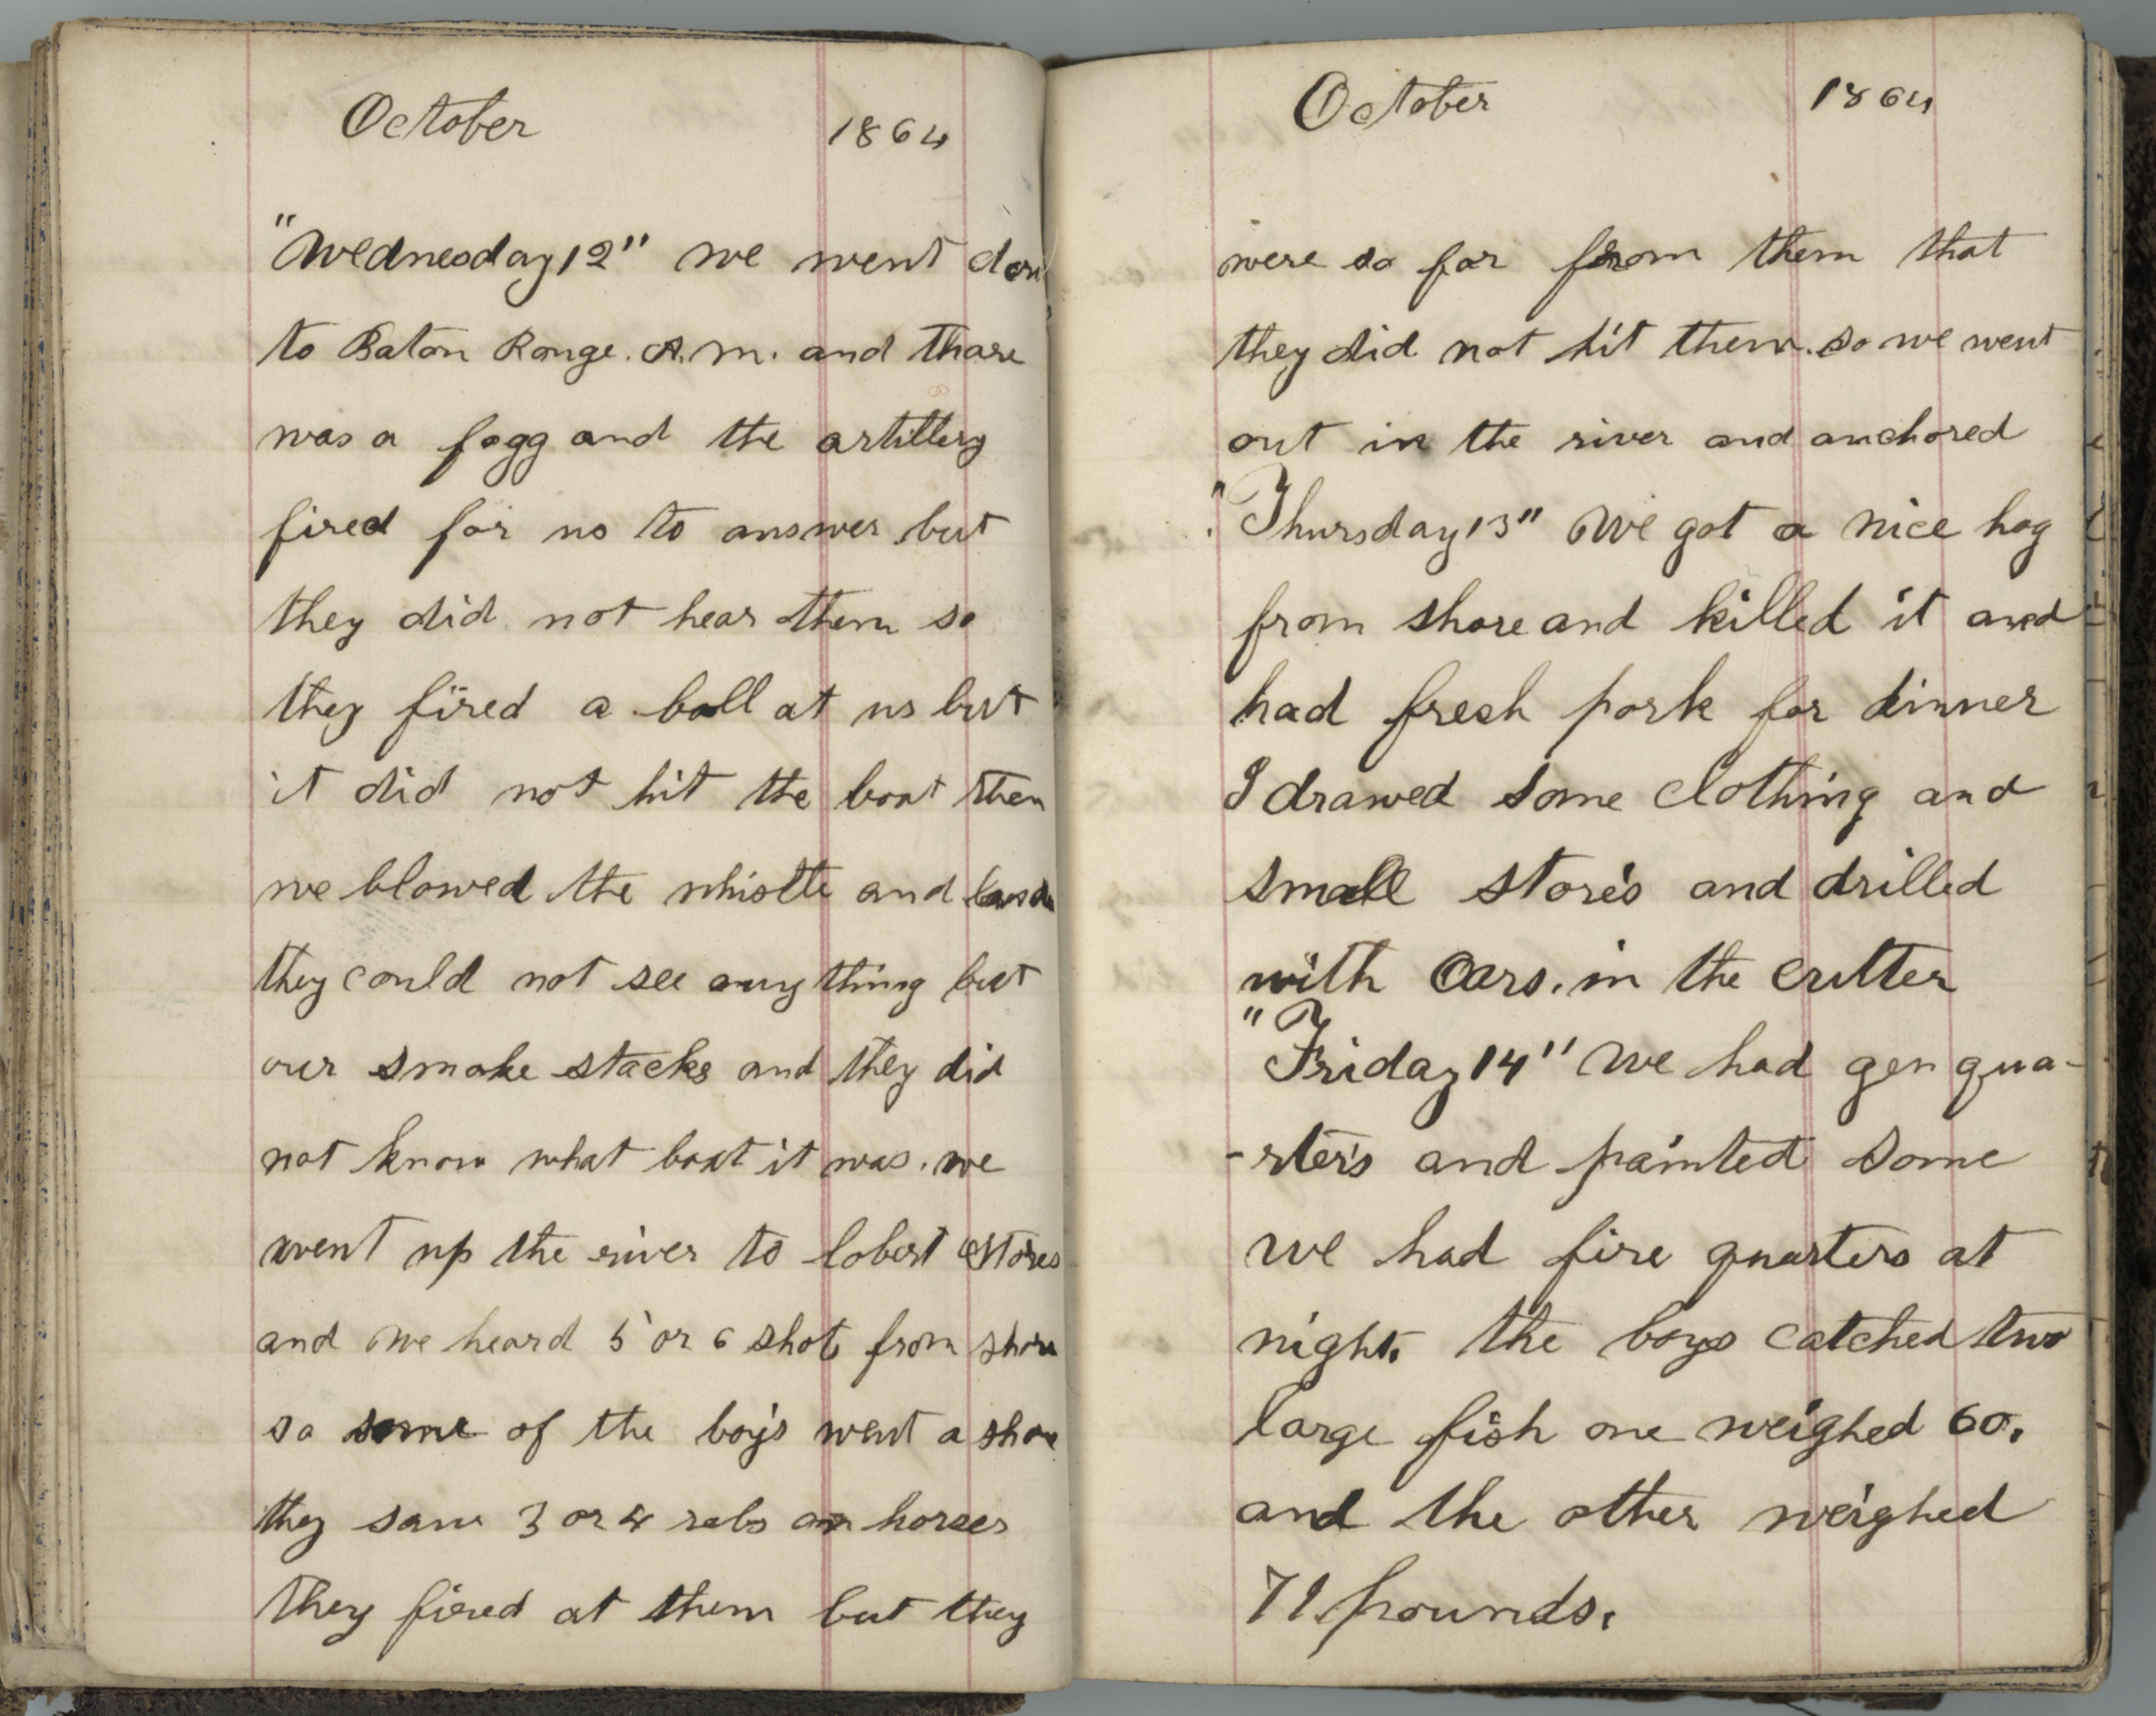 October 1864
"Wednesday 12" we went
to Baton Rouge. A.M. and thare
was a fogg and the artillery
fired for us to answer but
they did not hear them so
they fired a ball at us but
it did not hit the boat then
we blowed the whistle and
they could not see any thing but
our smoke stacks and they did
not know what boat it was. we
went up the river to lobert stores
and we heard 5 or 6 shot from shore
so some of the boy's went a shore
they saw 3 or 4 rebs on horses
they fired at them but they
October 1864
were so far from them that
they did not hit them. so we went
out in the river and anchored
"Thursday 13" We got a nice hog
from shore and killed it and
had fresh pork for dinner
I drawed some clothing and
small store's and drilled
with Oars. in the cutter
"Friday 14" We had gen qua-
-rter's and painted some
we had fire quarters at
night. the boys catched two
large fish one weighed 60.
and the other weighed
71 pounds.